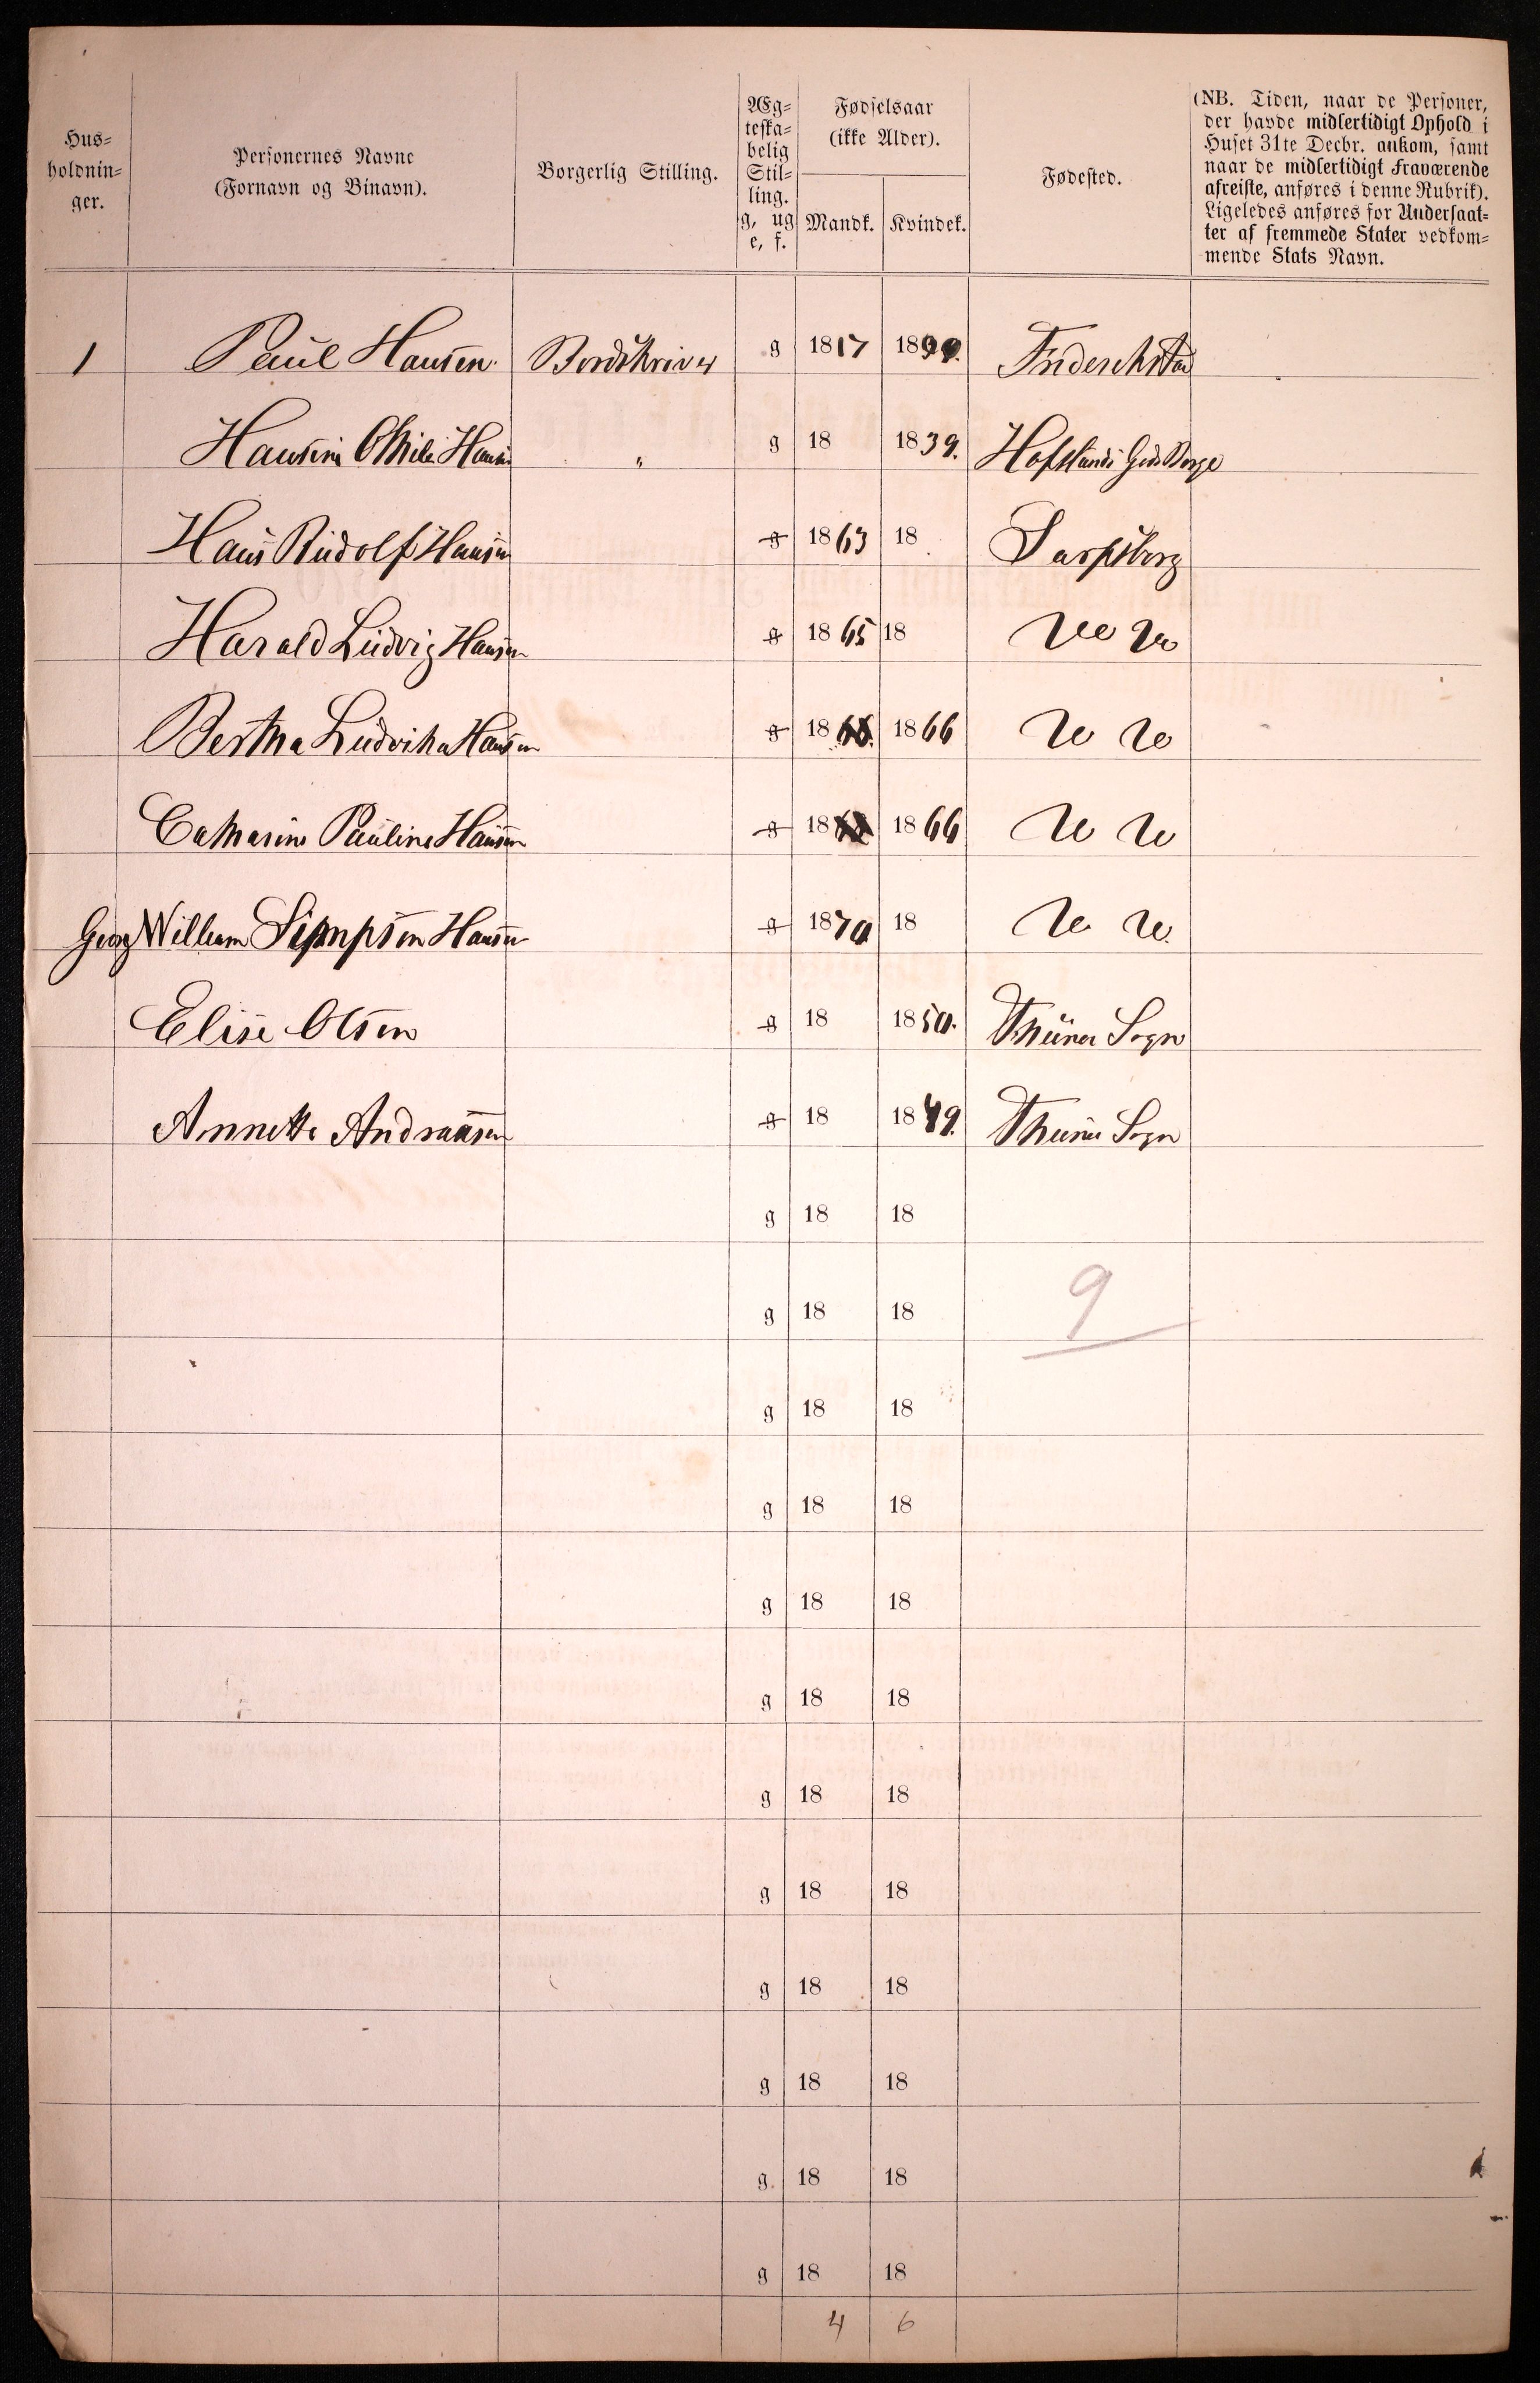 Hus=
holdnin=
ger.
Personernes Navne
(Fornavn og Binavn).
Borgerlig Stilling.
Æg=
teska=
belig
Stil=
ling.
g, ug
e, f.
Fødselsaar
(ikke Alder).
Mandk. Kvindek.
Fødested.
(NB. Tiden, naar de Personer,
der havde midlertidigt Ophold i
Huset 31te Decbr. ankom, samt
naar de midlertidigt Fraværende
afreiste, anføres i denne Rubrik).
Ligeledes anføres for Undersaat=
ter af fremmede Stater vedkom=
mende Stats Navn.
1 Paul Hansen Bordskriver g 1817 18 Frederikstad
Hansine Othilie Hansen " g 18 1839. Hafslunds Gods Borge
Hans Rudolf Hansen g 1863 18 Sarpsborg
Harald Ludvig Hansen g 1865 18 do do
Bertha Ludvika Hansen g 18 1866 do do
Catharine Pauline Hansen g 18 1866 do do
Georg William Simpson Hansen g 1870 18 do do
Elise Olsen g 18 1850. Thunø Sogn
Annette Andraasen g 18 1849. Thunø Sogn
g 18 18
g 18 18 9
g 18 18
g 18 18
g 18 18
g 18 18
g 18 18
g 18 18
g 18 18
g 18 18
g. 18 18
g 18 18
4 6